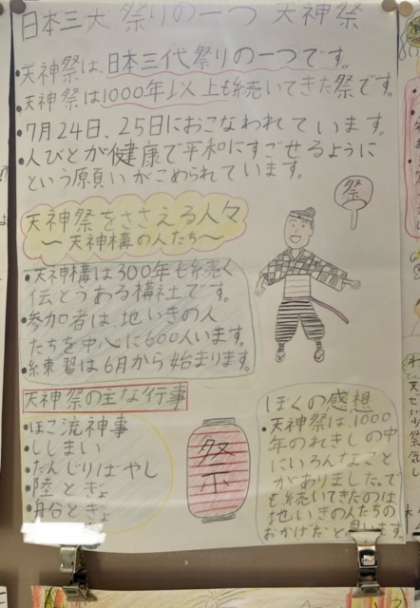 日本三大祭りの一つ 天神祭
・天神祭は、日本三代祭りの一つです。
天神祭は1000年以上も続いてきた祭です。
・7月24日、25日におこなわれています。
・人びとが健康で平和にすごせるように
という願いがこめられています。
祭
天神祭をささえる人々
〜天神構の人たち〜
・天神構は300年も続く
伝とうある構社です。
・参加者は、地いきの人
たちを中心に600人います。
・練習は6月から始まります。
天神祭の主な行事
・ほこ流神事
・ししまい
・だんじりばやし
・陸とぎょ
・船とぎょ
祭
ぼくの感想
・天神祭は、1000
年のれきしの中
にいろんなこと
がありました。で
も続いてきたのは
地いきの人たちの
おかげだと思います。